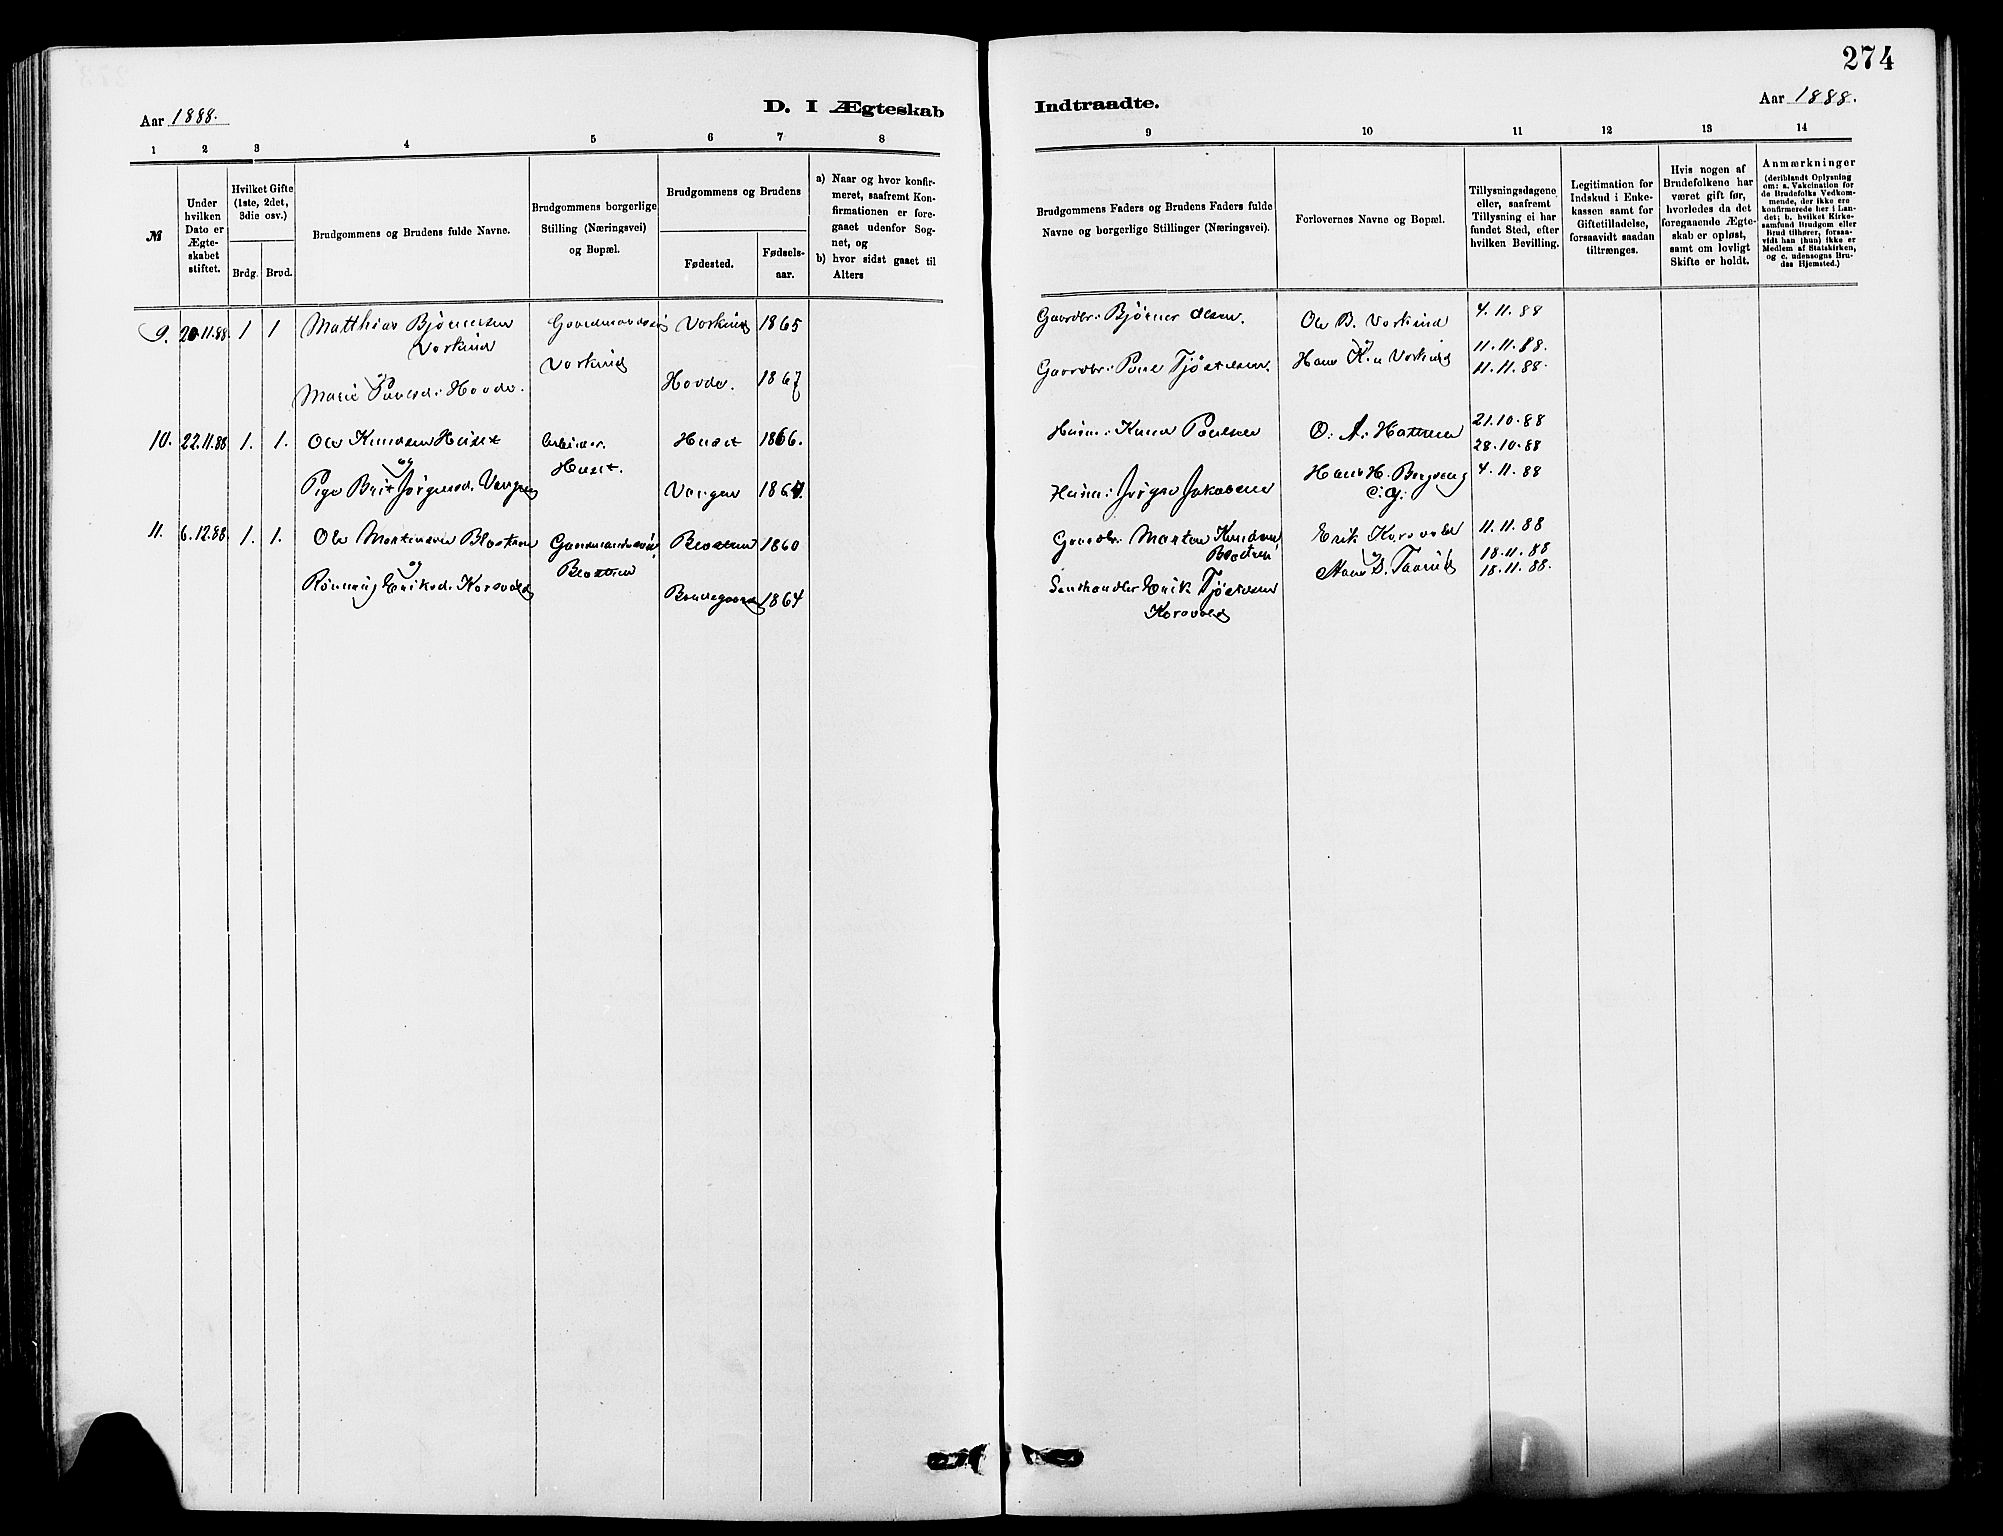 274
Aar 1888.
D. I Ægteskab
Indtraadte.
Aar 1888.
1 2 3 4 5 6 7 8
9 10 11 12 13 14
№
Under hvilken Dato er Ægteskabet stiftet.
Hvilket Gifte (1ste, 2det, 3die osv.)
Brdg. Brud.
Brudgommens og Brudens fulde Navne.
Brudgommens borgerlige Stilling (Næringsvei) og Bopæl.
Brudgommens og Brudens
Fødested.
Fødselsaar.
a) Naar og hvor konfirmeret, saafremt Konfirmationen er foregaaet udenfor Sognet, og
b) hvor sidst gaaet til Alters
Brudgommens Faders og Brudens Faders fulde Navne og borgerlige Stillinger (Næringsvei).
Forlovernes Navne og Bopæl.
Tillysningsdagene eller, saafremt Tillysning ei har fundet Sted, efter hvilken Bevilling.
Legitimation for Indskud i Enkekassen samt for Giftetilladelse, forsaavidt saadan tiltrænges.
Hvis nogen af Brudefolkene har været gift før, hvorledes da det foregaaende Ægteskab er opløst, samt om lovligt Skifte er holdt.
Anmærkninger
(deriblandt Oplysning om: a. Vakcination for de Brudefolks Vedkommende, der ikke ere konfirmerede her i Landet; b. hvilket Kirkesamfund Brudgom eller Brud tilhører, forsaavidt han (hun) ikke er Medlem af Statskirken, og c. udensogns Brudes Hjemsted.)
9. 20.11.88 1 1 Matthias Bjørnersen Vorkind
Vorkind
Vorkind 1865
Gaardbr: Bjørner Olsen.
Ole B. Vorkind
4.11.88
og
Marie Paulsd: Hovde.
Hovde. 1867
Gaardbr: Poul Tjøstelsen.
Hans K. Vorkind
11.11.88.
11.11.88.
10. 22.11.88 1. 1. Ole Knudsen Huset
Arbeider.
Huset.
Huset 1866.
Husm: Knud Poulsen
O: A: Hattrem
21.10.88
28.10.88
og
Pige Brit Jørgensd. Vangen
Vangen
Husm: Jørgen Jakobsen
Hans H. Bergseng
4.11.88
11. 6.12.88 1. 1. Ole Mortensen Blostren
Blostren
Blostren 1860
Gaardbr: Morten Knudsen
Blostren
Erik Korsvold
11.11.88
og
Rønnaug Eriksd. Korsvold
1864
Landhandler Erik Tjøstelsen
Korsvold
18.11.88
18.11.88.